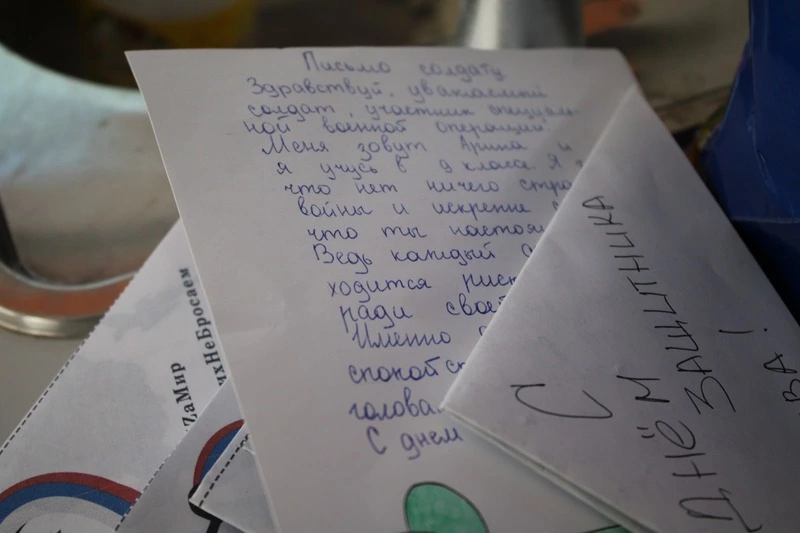 Письмо солдату
Здравствуй, уважаемый
солдат, участник специаль-
ной военной операции!
Меня зовут Арина и
я учусь в 9 классе. Я
что нет ничего стра
войны и искренне
что ты настоя
Ведь каждый
ходится риск
ради своей
Именно
спокойс
голова
С днем
С
ДНЁМ
ЗАЩИТНИКА
ВА!
ZaМир
хНеБросаем